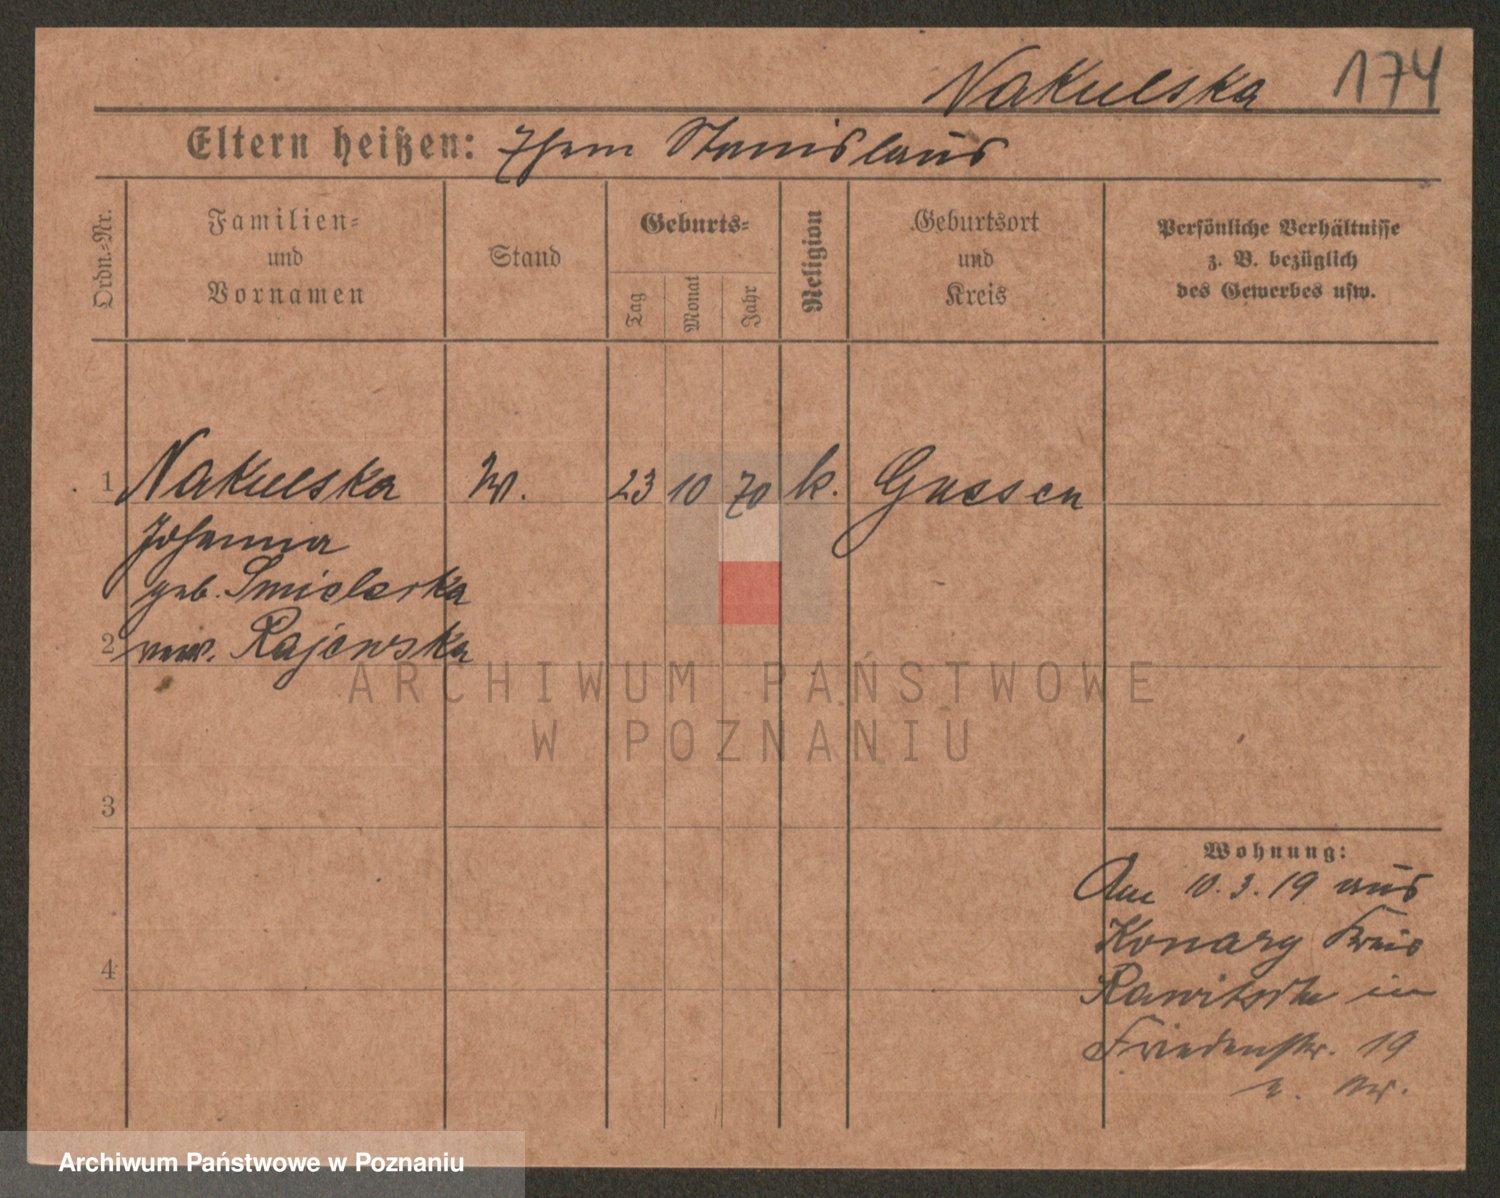 Nakulska 174
Eltern heißen: Ehem Stanislaus
Ordn.-Nr.
Familien-
und
Vornamen
Stand
Geburts-
Tag
Monat
Jahr
Religion
Geburtsort
und
Kreis
Persönliche Verhältnisse
z. B. bezüglich
des Gewerbes usw.
1 Nakulska W. 23 10 70 k. Gnesen
Johanna
geb. Smielecka
2 verw. Rajewska
ARCHIWUM PAŃSTWOWE
W POZNANIU
3
4
Wohnung:
Am 10.3.19 aus
Konary Kreis
Rawitsch in
Friedenstr. 19
Archiwum Państwowe w Poznaniu